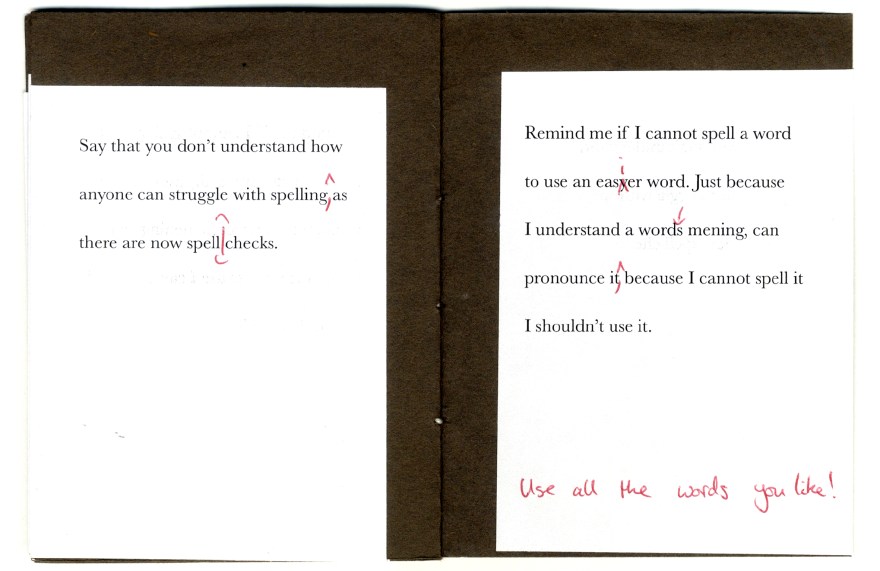 Say that you don't understand how
anyone can struggle with spelling, as
there are now spell checks.
Remind me if I cannot spell a word
i
to use an easyer word. Just because
I understand a word's mening, can
pronounce it, because I cannot spell it
I shouldn't use it.
Use all the words you like!